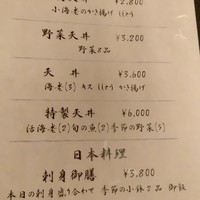 ¥2.800
小海老のかき揚げ
野菜天丼 ¥3.200
野菜8品
天丼 ¥3.600
海老(3) キス かき揚げ
特製天丼 ¥6,000
活海老(2) 旬の魚(2) 季節の野菜(3)
日本料理
刺身御膳 ¥3.800
本日の刺身盛り合わせ 季節の小鉢2品 御飯